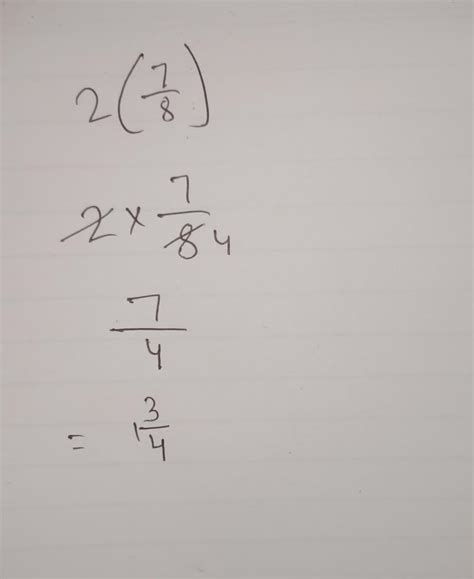 2(7/8)
2 × 7/8 4
7/4
= 1 3/4